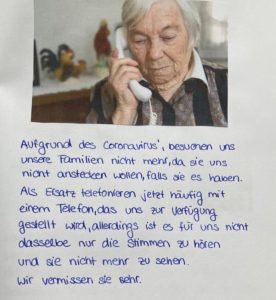 Aufgrund des Coronavirus', besuchen uns
unsere Familien nicht mehr, da sie uns
nicht anstecken wollen, falls sie es haben.
Als Ersatz telefonieren jetzt häufig mit
einem Telefon, das uns zur Verfügung
gestellt wird, allerdings ist es für uns nicht
dasselbe nur die Stimmen zu hören
und sie nicht mehr zu sehen.
Wir vermissen sie sehr.